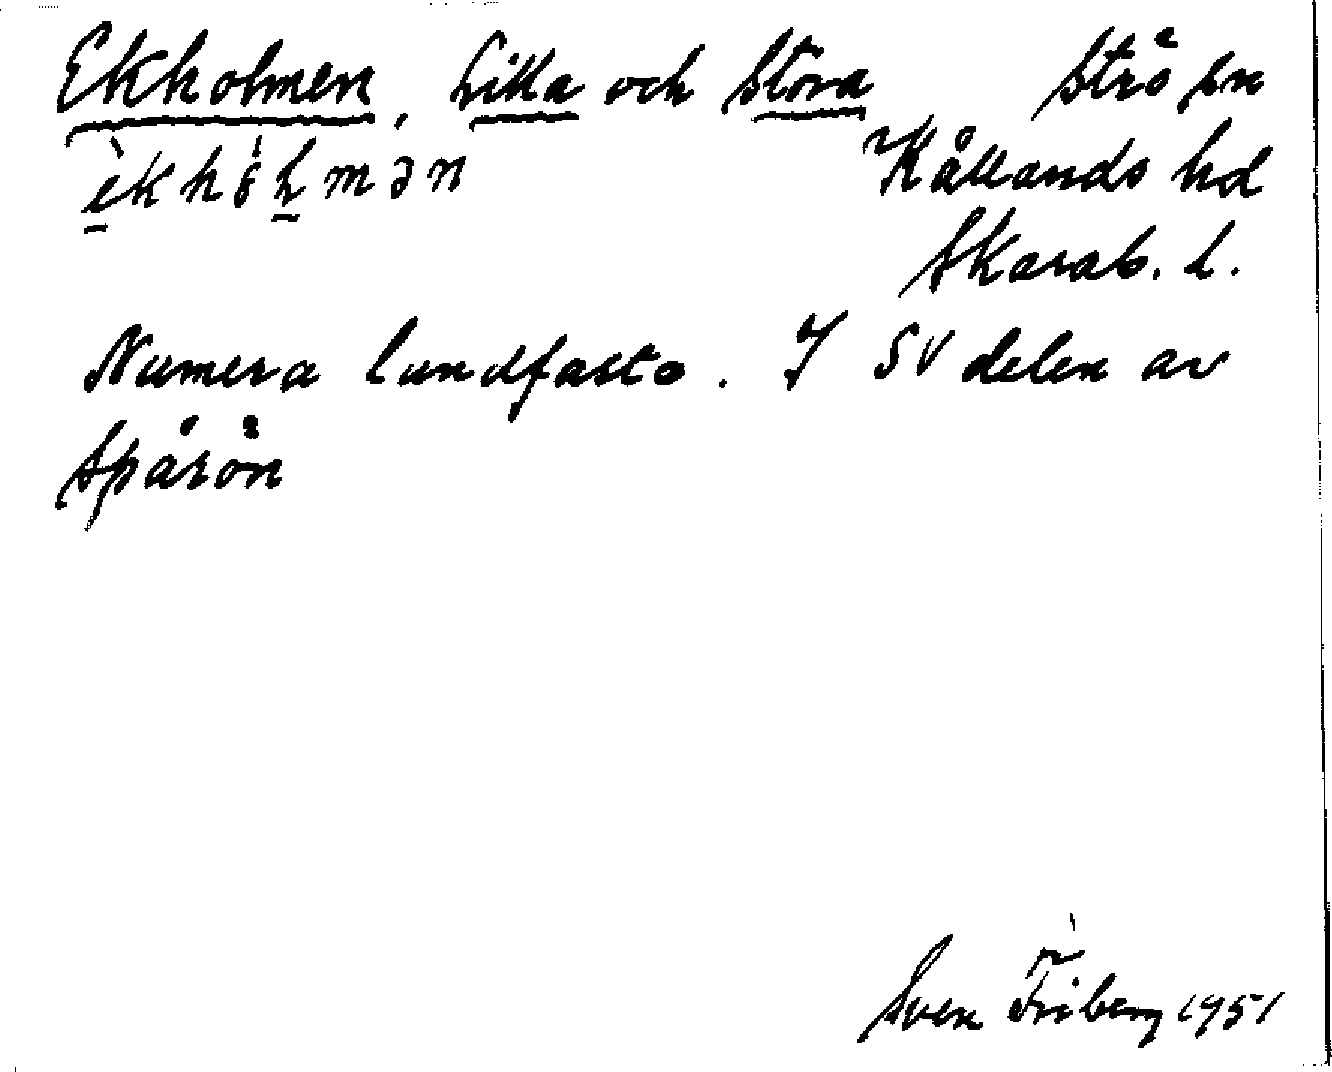 Ekholmen, Lilla och Stora Strö sn
Kållands hd
Skarab. l.
Numera landfasta. I SV delen av
Spårön
Sven Friberg 1951